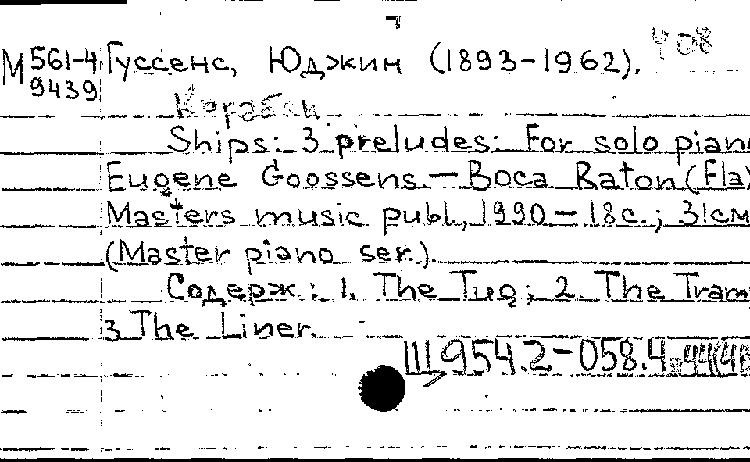 М 561-4 Гуссенс, Юджин (1893-1962). 408
9439
Корабли
Ships: 3 preludes: For solo piano
Eugene Goossens.— Boca Raton (Fla)
Masters music publ., 1990 — 18с.; 31см
(Master piano ser.).
Содерж: 1. The Tug; 2. The Tram
3. The Liner.
Щ954.2-058.4